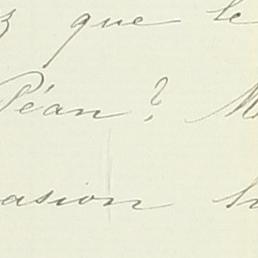 que le
Péan? M
asion